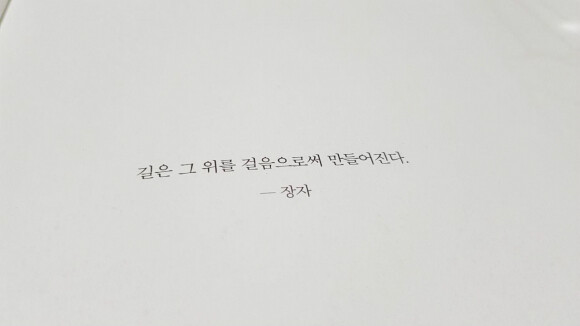 길은 그 위를 걸음으로써 만들어진다.
— 장자